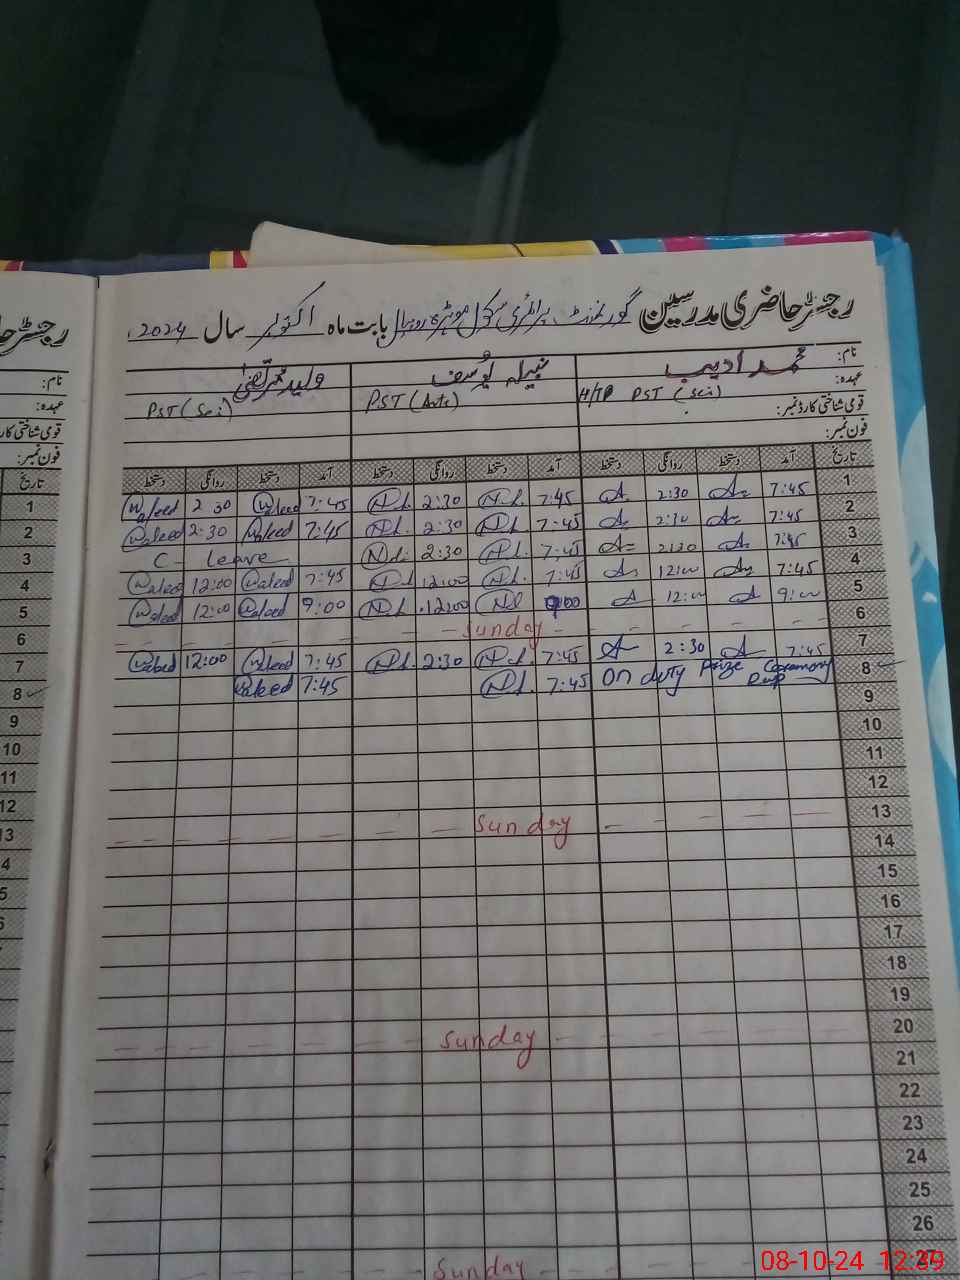 رجسٹر حاضری مدرسین گورنمنٹ پرائمری سکول موہڑہ روہال بابت ماہ اکتوبر سال 2024
نام: محمد ادیب نبیلہ یوسف ولید مرتضیٰ
عہدہ: H/TR PST (Sci) PST (Arts) PST (Sci)
قومی شناختی کارڈ نمبر:
فون نمبر:
تاریخ آمد دستخط روانگی دستخط آمد دستخط روانگی دستخط آمد دستخط روانگی دستخط
Waleed 2:30 Waleed 7:45 N.d. 2:30 N.d. 7:45 2:30 7:45 1
Waleed 2:30 Waleed 7:45 N.d. 2:30 N.d. 7:45 2:30 7:45 2
C - leave - N.d. 2:30 N.d. 7:45 2:30 7:45 3
Waleed 12:00 Waleed 7:45 N.d. 12:00 N.d. 7:45 12:00 7:45 4
Waleed 12:00 Waleed 9:00 N.d. 12:00 N.d. 9:00 12:00 9:00 5
Sunday 6
Waleed 12:00 Waleed 7:45 N.d. 2:30 N.d. 7:45 2:30 7:45 7
Waleed 7:45 N.d. 7:45 on duty prize Ceremony 8
9
10
11
12
Sunday 13
14
15
16
17
18
19
Sunday 20
21
22
23
24
25
26
Sunday 27
رجسٹر حا
نام:
عہدہ:
قومی شناختی کار
فون نمبر:
تاریخ
1
2
3
4
5
6
7
8
9
10
11
12
13
4
5
08-10-24 12:39